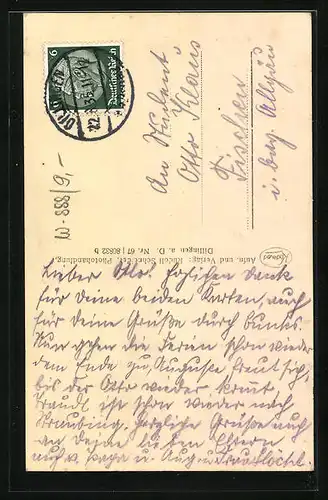 Deutsches Reich
6
An
Otto Klaus
Fischen
i. bay. Allgäu
W-888/9,-
Aufn. und Verlag: Rudolf Schreitter, Photohandlung,
Dillingen a. D. Nr. 67 | 80832 b
Lieber Otto! Herzlichen Dank
für Deine beiden Karten, auch
für Deine Grüße durch
Nun gehen die Ferien schon wieder
dem Ende zu, Auguste freut sich,
bis der Otto wieder kommt.
Traudl ist schon wieder nach
Straubing. Herzliche Grüße auch
an Deine lieben Eltern
auch v. Papa u. Aug. u.